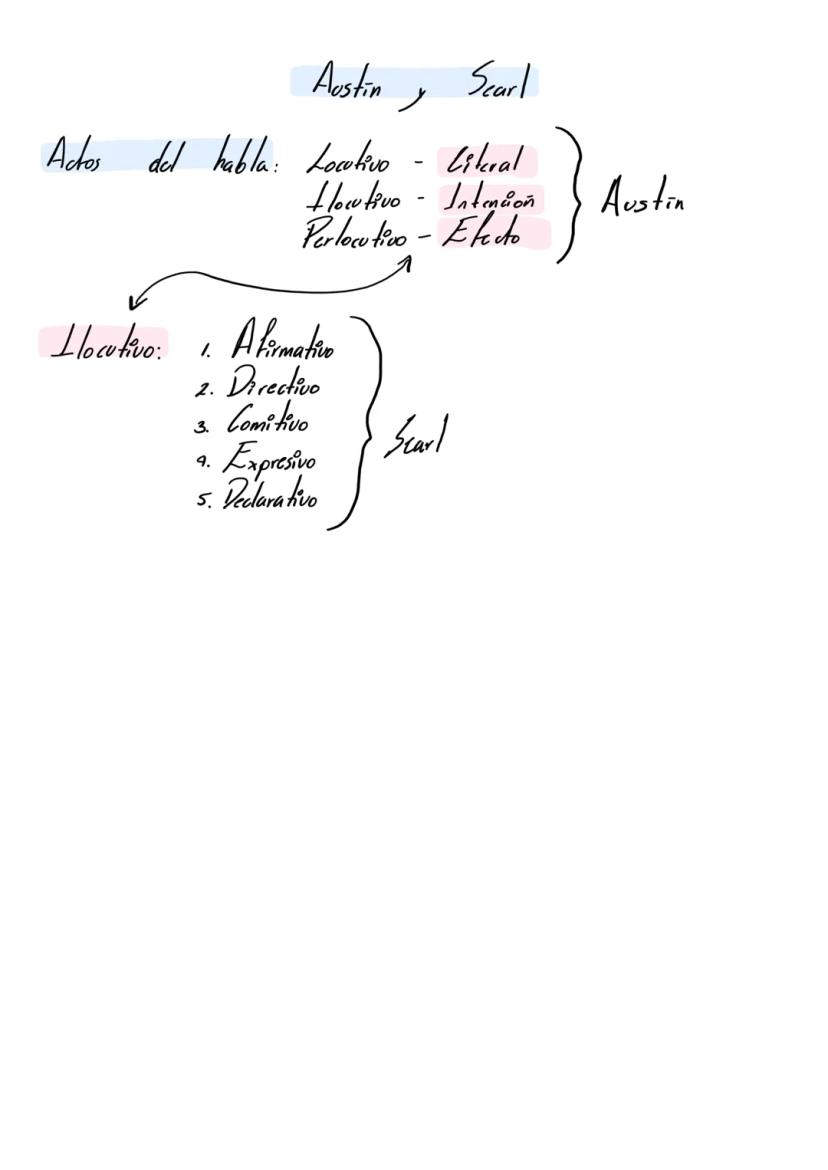 Austin y Searl
Actos del habla: Locutivo - Literal
Ilocutivo - Intención
Perlocutivo - Efecto
Austin
Ilocutivo: 1. Afirmativo
2. Directivo
3. Comitivo
4. Expresivo
5. Declarativo
Searl